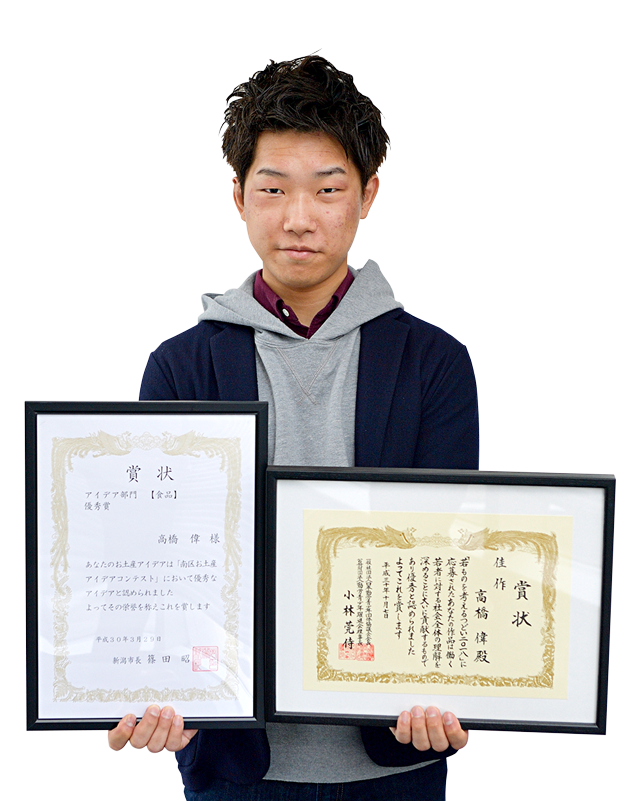 賞状
アイデア部門　【食品】
優秀賞
高橋　偉　様
あなたのお土産アイデアは「南区お土産
アイデアコンテスト」において優秀な
アイデアと認められました
よってその栄誉を称えこれを賞します
平成３０年３月２９日
新潟市長　篠田　昭
賞状
佳作
高橋　偉　殿
「若ものを考えるつどい二〇一八」に
応募されたあなたの作品は働く
若者に対する社会全体の理解を
深めることに大いに貢献するもので
あり優秀と認められました
よってこれを賞します
平成三十年十月七日
小林莞侍